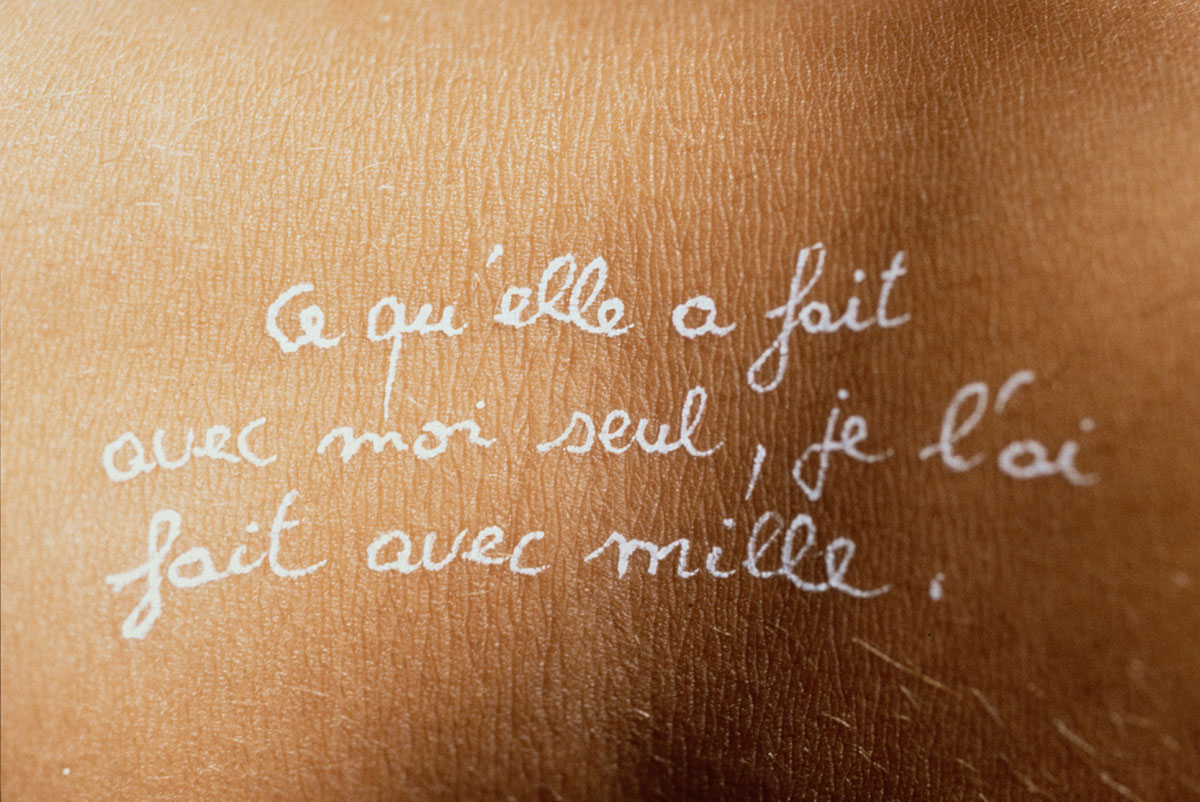 Ce qu'elle a fait
avec moi seul, je l'ai
fait avec mille.